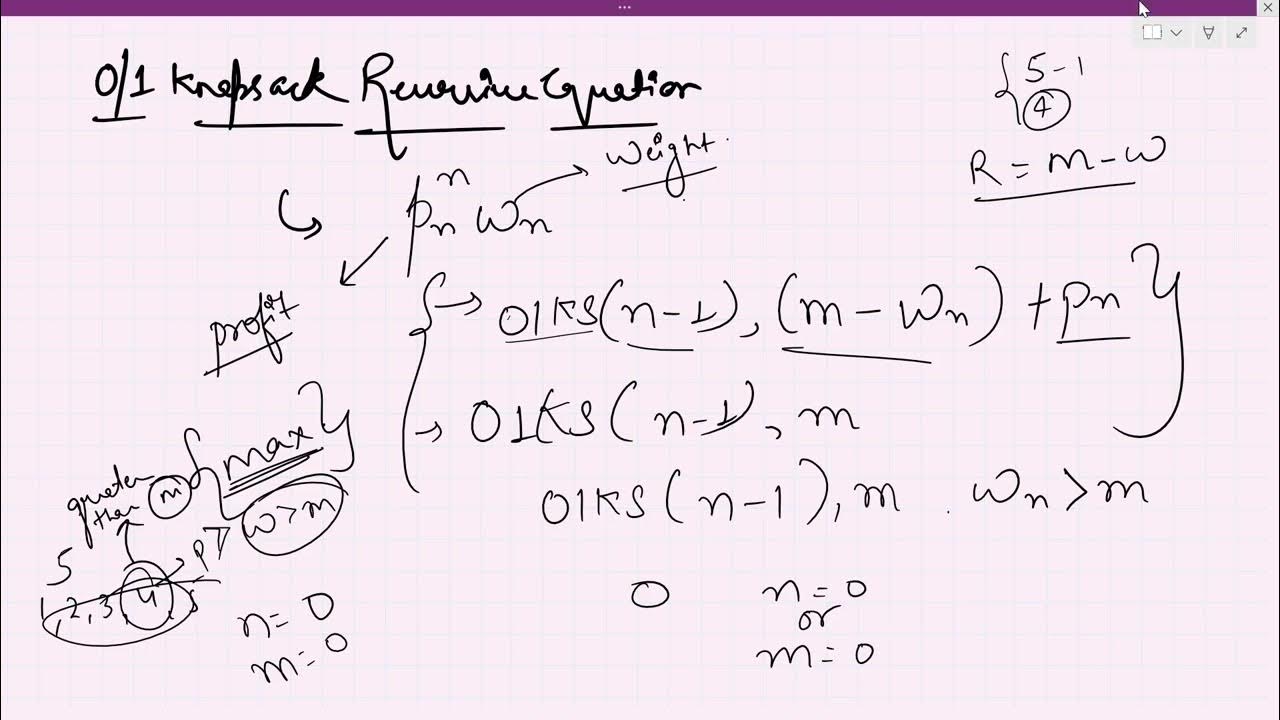 0/1 Knapsack Recursive Equation
{ 5-1
4
R = m-w
n
Pn Wn
Weight
profit
{ → 01KS(n-1), (m - Wn) + Pn }
→ 01KS(n-1), m
{max}
greater than m
w > m
01KS(n-1), m . Wn > m
5
1, 2, 3, 4, 5
n = 0
m = 0
0 n = 0
or
m = 0